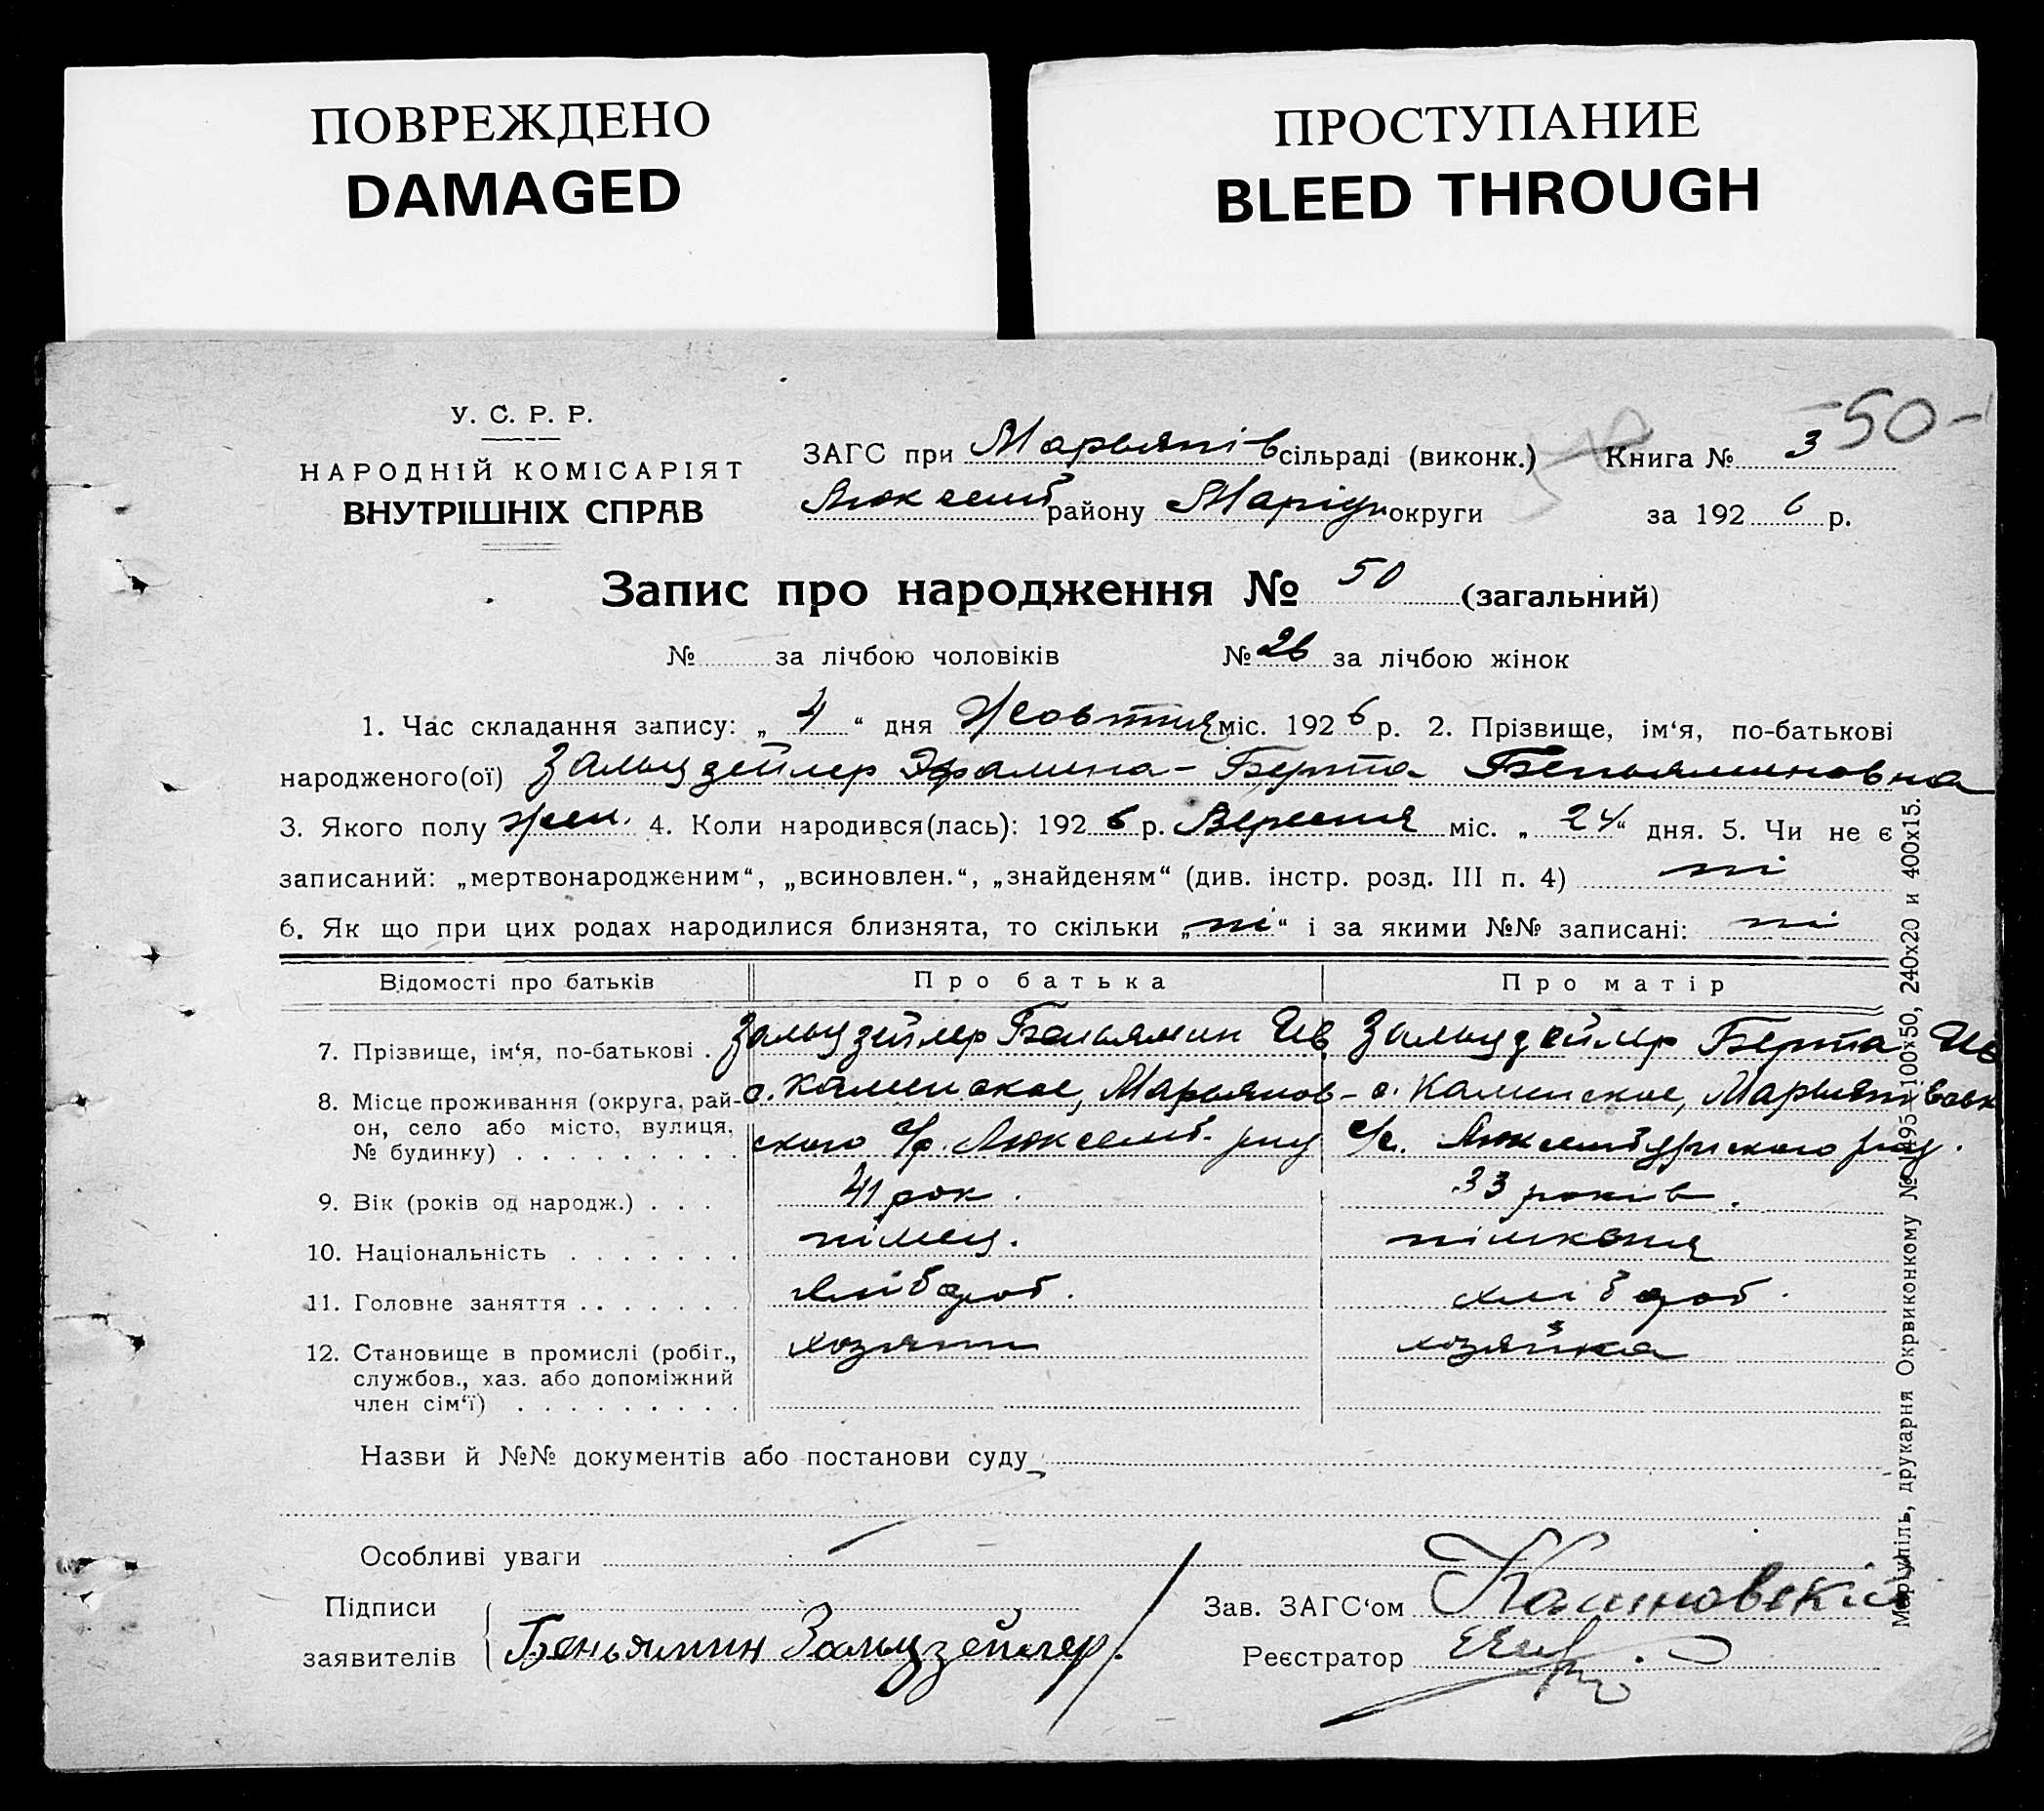 ПОВРЕЖДЕНО
DAMAGED
ПРОСТУПАНИЕ
BLEED THROUGH
-50-
У. С. Р. Р.
НАРОДНІЙ КОМІСАРІЯТ
ВНУТРІШНІХ СПРАВ
ЗАГС при Марьянів сільраді (виконк.) Книга № 3
Люксемб району Маріуп. округи за 192 6 р.
Запис про народження № 50 (загальний)
№ за лічбою чоловіків № 26 за лічбою жінок
1. Час складання запису: „ 4 “ дня Жовтня міс. 192 6 р. 2. Прізвище, ім‘я, по-батькові
народженого(ої) Зальцзейлер Эфалина-Берта Беньяминовна
3. Якого полу жен. 4. Коли народився(лась): 192 6 р. Вересня міс. „ 24 “ дня. 5. Чи не є
записаний: „мертвонародженим“, „всиновлен.“, „знайденям“ (див. інстр. розд. III п. 4) ні
6. Як що при цих родах народилися близнята, то скільки „ ні “ і за якими №№ записані: ні
Відомості про батьків Про батька Про матір
7. Прізвище, ім‘я, по-батькові . Зальцзейлер Беньямин Ив Зальцзейлер Берта Ив
8. Місце проживання (округа, рай- с. Каменское, Марьянов- с. Каменское, Марьянівськ
он, село або місто, вулиця, ского с/р. Люксемб. рну с/с. Люксембургского рну.
№ будинку) . . . . . . . . .
9. Вік (років од народж.) . . . 41 рок. 33 років.
10. Національність . . . . . . . німец. німкеня
11. Головне заняття . . . . . . . хлібороб. хлібороб.
12. Становище в промислі (робіт., хозяин хозяйка
службов., хаз. або допоміжний
член сім‘ї) . . . . . . . . .
Назви й №№ документів або постанови суду
Особливі уваги
Підписи
заявителів Беньямин Зальцзейлер.
Зав. ЗАГС‘ом
Реєстратор
Маріупіль, друкарня Окрвиконкому № 1495—100×50, 240×20 и 400×15.